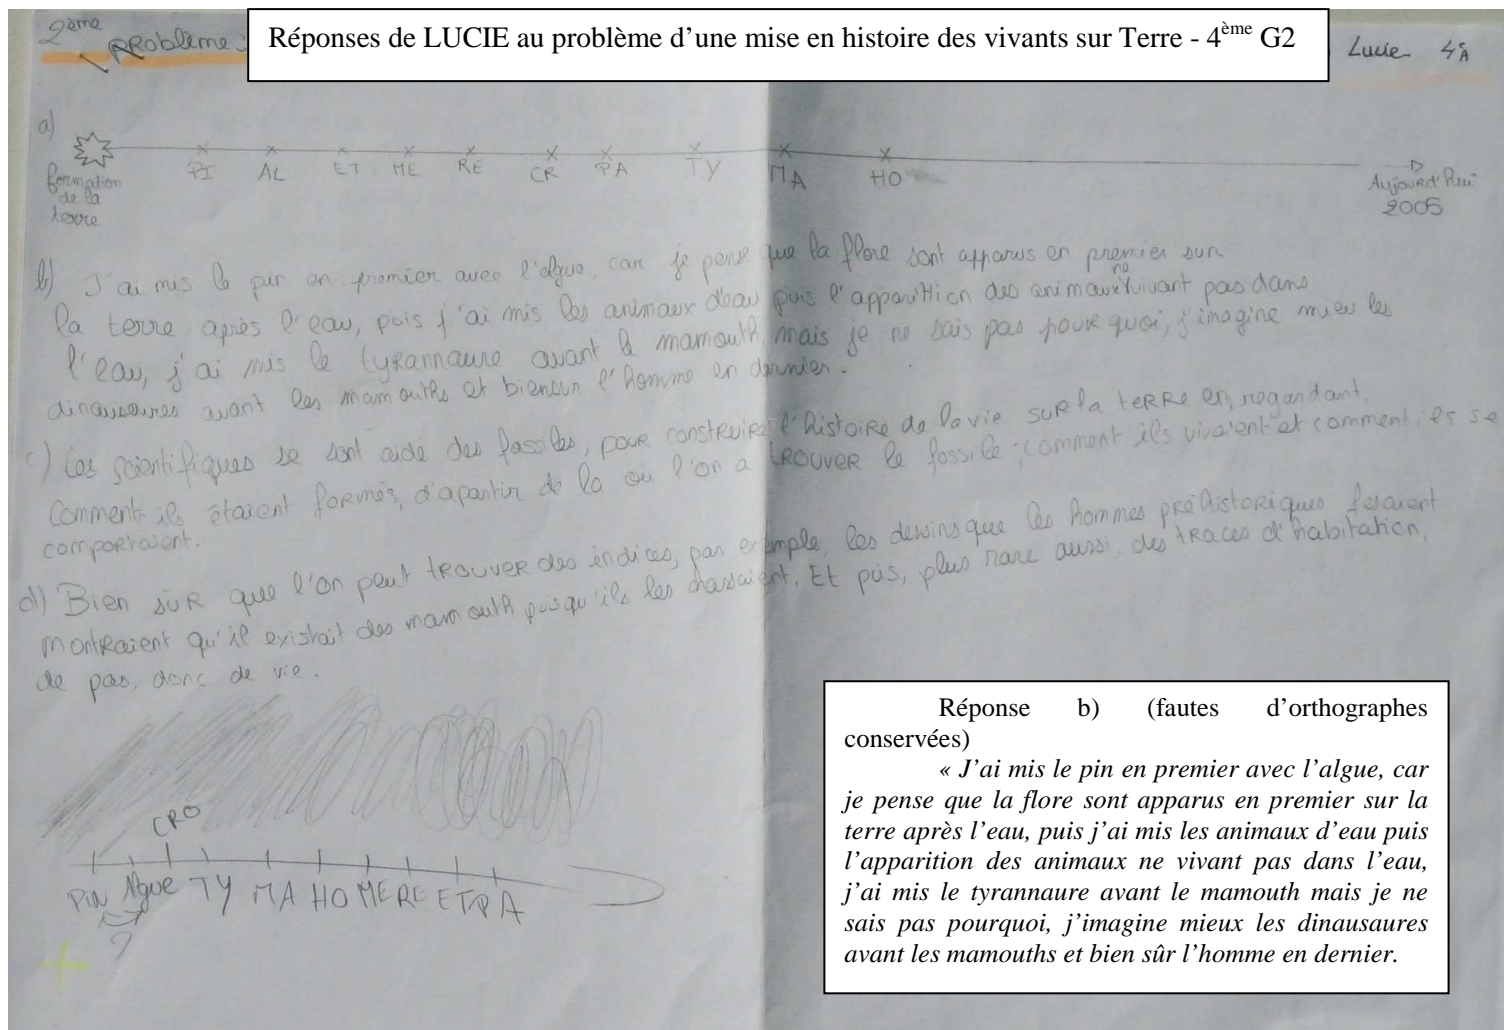 2ème
PRoblème :
Réponses de LUCIE au problème d’une mise en histoire des vivants sur Terre - 4ème G2
Lucie 4èA
a)
PI AL ET ME RE CR PA TY MA HO
formation
de la
terre
Aujourd'hui
2005
b) J'ai mis le pin en premier avec l'algue, car je pense que la flore sont apparus en premier sur
la terre après l'eau, puis j'ai mis les animaux d'eau puis l'apparittion des animaux ne vivant pas dans
l'eau, j'ai mis le tyrannaure avant le mamouth, mais je ne sais pas pourquoi, j'imagine mieu les
dinausaures avant les mamouths et biensur l'homme en dernier.
c) Les scientifiques se sont aidé des fossiles, pour construire l'histoire de la vie sur la terre en regardant
comment ils étaient formés, d'apartir de la où l'on a trouver le fossile ; comment ils vivaient et comment ils se
comportaient.
d) Bien sûr que l'on peut trouver des indices, par exemple, les dessins que les hommes préhistoriques fesaient
montraient qu'il existait des mamouth puisqu'ils les chassaient. Et puis, plus rare aussi, des traces d'habitation,
de pas, donc de vie.
CRO
PIN Algue TY MA HO ME RE ET PA
?
Réponse b) (fautes d’orthographes
conservées)
« J’ai mis le pin en premier avec l’algue, car
je pense que la flore sont apparus en premier sur la
terre après l’eau, puis j’ai mis les animaux d’eau puis
l’apparition des animaux ne vivant pas dans l’eau,
j’ai mis le tyrannaure avant le mamouth mais je ne
sais pas pourquoi, j’imagine mieux les dinausaures
avant les mamouths et bien sûr l’homme en dernier.